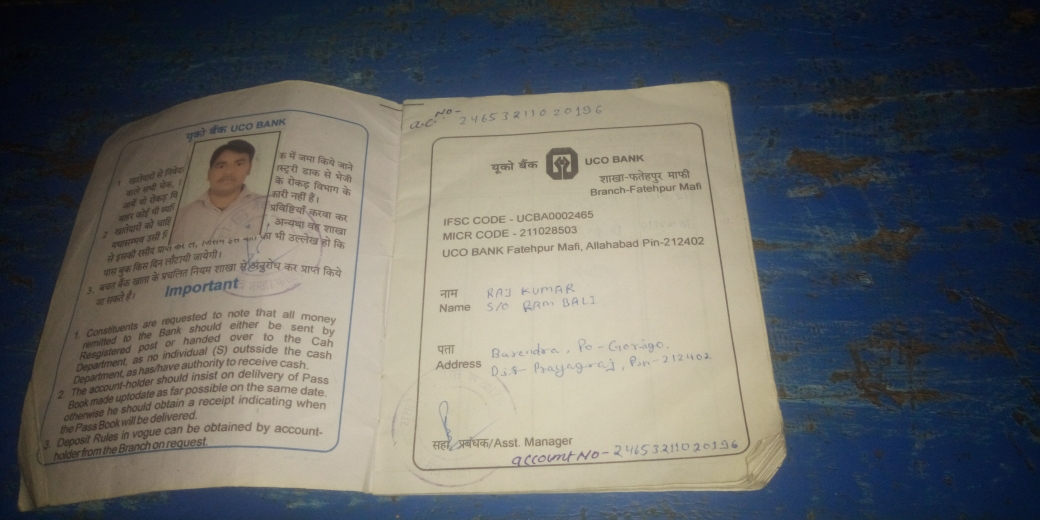 यूको बैंक UCO BANK
1 खातेदारों से निवेदन क में जमा किये जाने
वाले सभी चेक, स्टरी डाक से भेजी
जायें या रोकड़ वि के रोकड़ विभाग के
बाहर कोई भी व्यक्ति कारी नहीं है।
2 खातेदारों को चाहि प्रविष्टियाँ करवा कर
यथासम्भव उसी f , अन्यथा वह शाखा
से इसकी रसीद प्राप्त कर लें, जिसमें इस का भी उल्लेख हो कि
पास बुक किस दिन लौटायी जायेगी।
3. बचत बैंक खाता के प्रचलित नियम शाखा से अनुरोध कर प्राप्त किये
जा सकते है।
Important
1. Constituents are requested to note that all money
remitted to the Bank should either be sent by
Resgistered post or handed over to the Cah
Department, as no individual (S) outsside the cash
Department, as has/have authority to receive cash.
2. The account-holder should insist on delilvery of Pass
Book made uptodate as far possible on the same date.
otherwise he should obtain a receipt indicating when
the Pass Book will be delivered.
3. Deposit Rules in vogue can be obtained by account-
holder from the Branch on request.
a-c No- 24653211020196
यूको बैंक UCO BANK
शाखा-फतेहपुर माफी
Branch-Fatehpur Mafi
IFSC CODE - UCBA0002465
MICR CODE - 211028503
UCO BANK Fatehpur Mafi, Allahabad Pin-212402
नाम
Name RAJ KUMAR
S/O RAM BALI
पता
Address Barendra, Po-Goriyo,
Dis- Prayagraj, Pin-212402
सहा. प्रबंधक/Asst. Manager
account No- 24653211020196